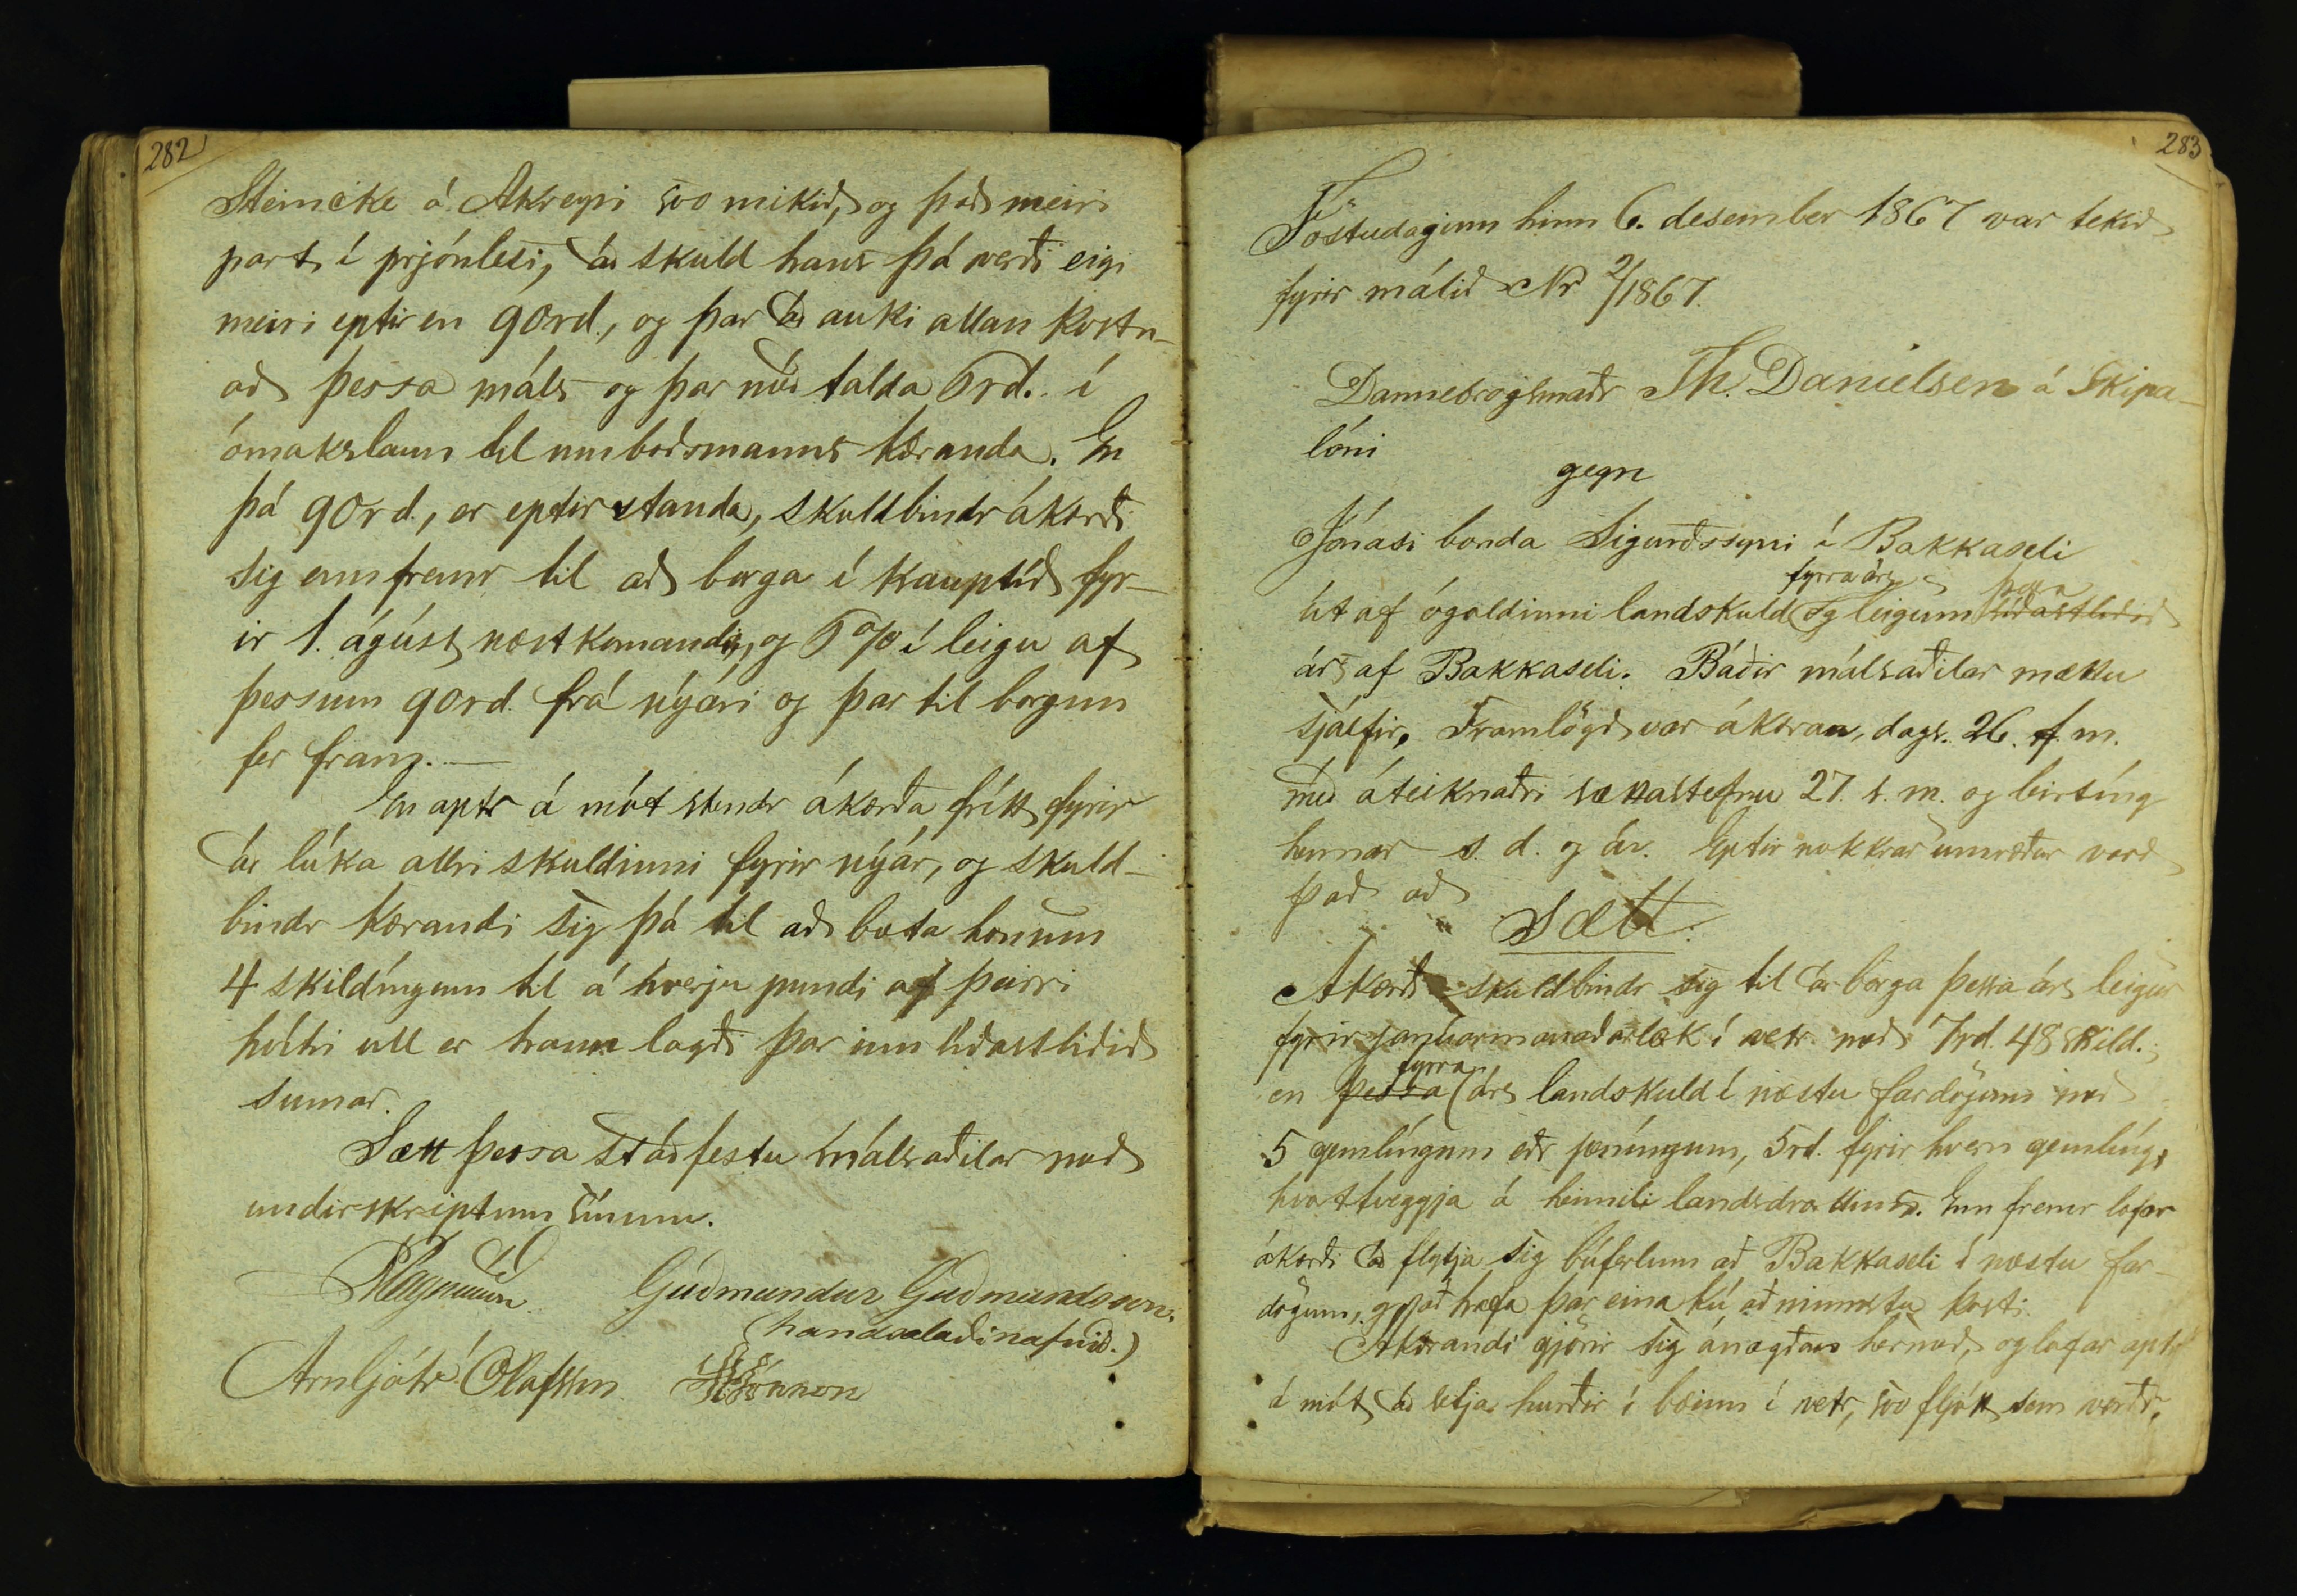 282
Steincke á Akreyri svo mikið, og það meiri
part í prjónlesi, að skuld hans þá verði eigi
meiri eptir en 90rd., og þar að auki allan kostn-
að þessa máls og þar með talda 6rd. í
ómakslaun til umboðsmanns kæranda. En
þá 90rd., er eptir standa, skuldbindr ákærði
sig enn fremr til að borga í kauptíð fyr-
ir 1. ágúst næstkomandi, og 6% í leigu af
þessum 90rd. frá nýári og þar til borgun
fer fram. —
En aptr á mót stendr ákærða frítt fyrir
að lúka allri skuldinni fyrir nýár, og skuld-
bindr kærandi sig þá til að bæta honum
4 skildíngum til á hverju pundi af þeirri
hvítri ull er hann lagði þar inn síðastliðið
sumar.
Sætt þessa staðfestu málsaðilar með
undirskriptum sínum.
Guðmundur Guðmundsson.
(handsalaði nafnið.)
Arnljótr Ólafsson
283
Föstudaginn hinn 6. desember 1867 var tekið
fyrir málið Nr 2/1867.
Dannebrogsmaðr Th. Danielsen á Skipa-
lóni
gegn
Jónasi bónda Sigurðssyni í Bakkaseli
fyrra árs þessa
út af ógoldinni landskuld og leigum síðastliðið
árs af Bakkaseli. Báðir málsaðilar mættu
sjálfir. Framlögð var ákæran, dags. 26. f. m.
með áteiknaðri sættastefnu 27. s. m. og birtíng
hennar s. d. og ár. Eptir nokkrar umræður varð
það að
Sætt.
Ákærði skuldbindr sig til að borga þessa árs leigur
fyrir janúarmánaðarlok í vetr með 7rd. 48 skild.;
fyrra
en þessa árs landskuld í næstu fardögum með
5 gemlíngum eðr peníngum, 5rd. fyrir hvern gemlíng,
hvorttveggja á heimili landsdrottins. Enn fremr lofar
ákærði að flytja sig búferlum að Bakkaseli í næstu far-
dögum, og að hafa þar eina kú, að minnsta kosti.
Ákærandi gjörir sig ánægðan hermeð, og lofar aptr
á mót að setja hurðir í bæinn í vetr, svo fljótt sem verðr,